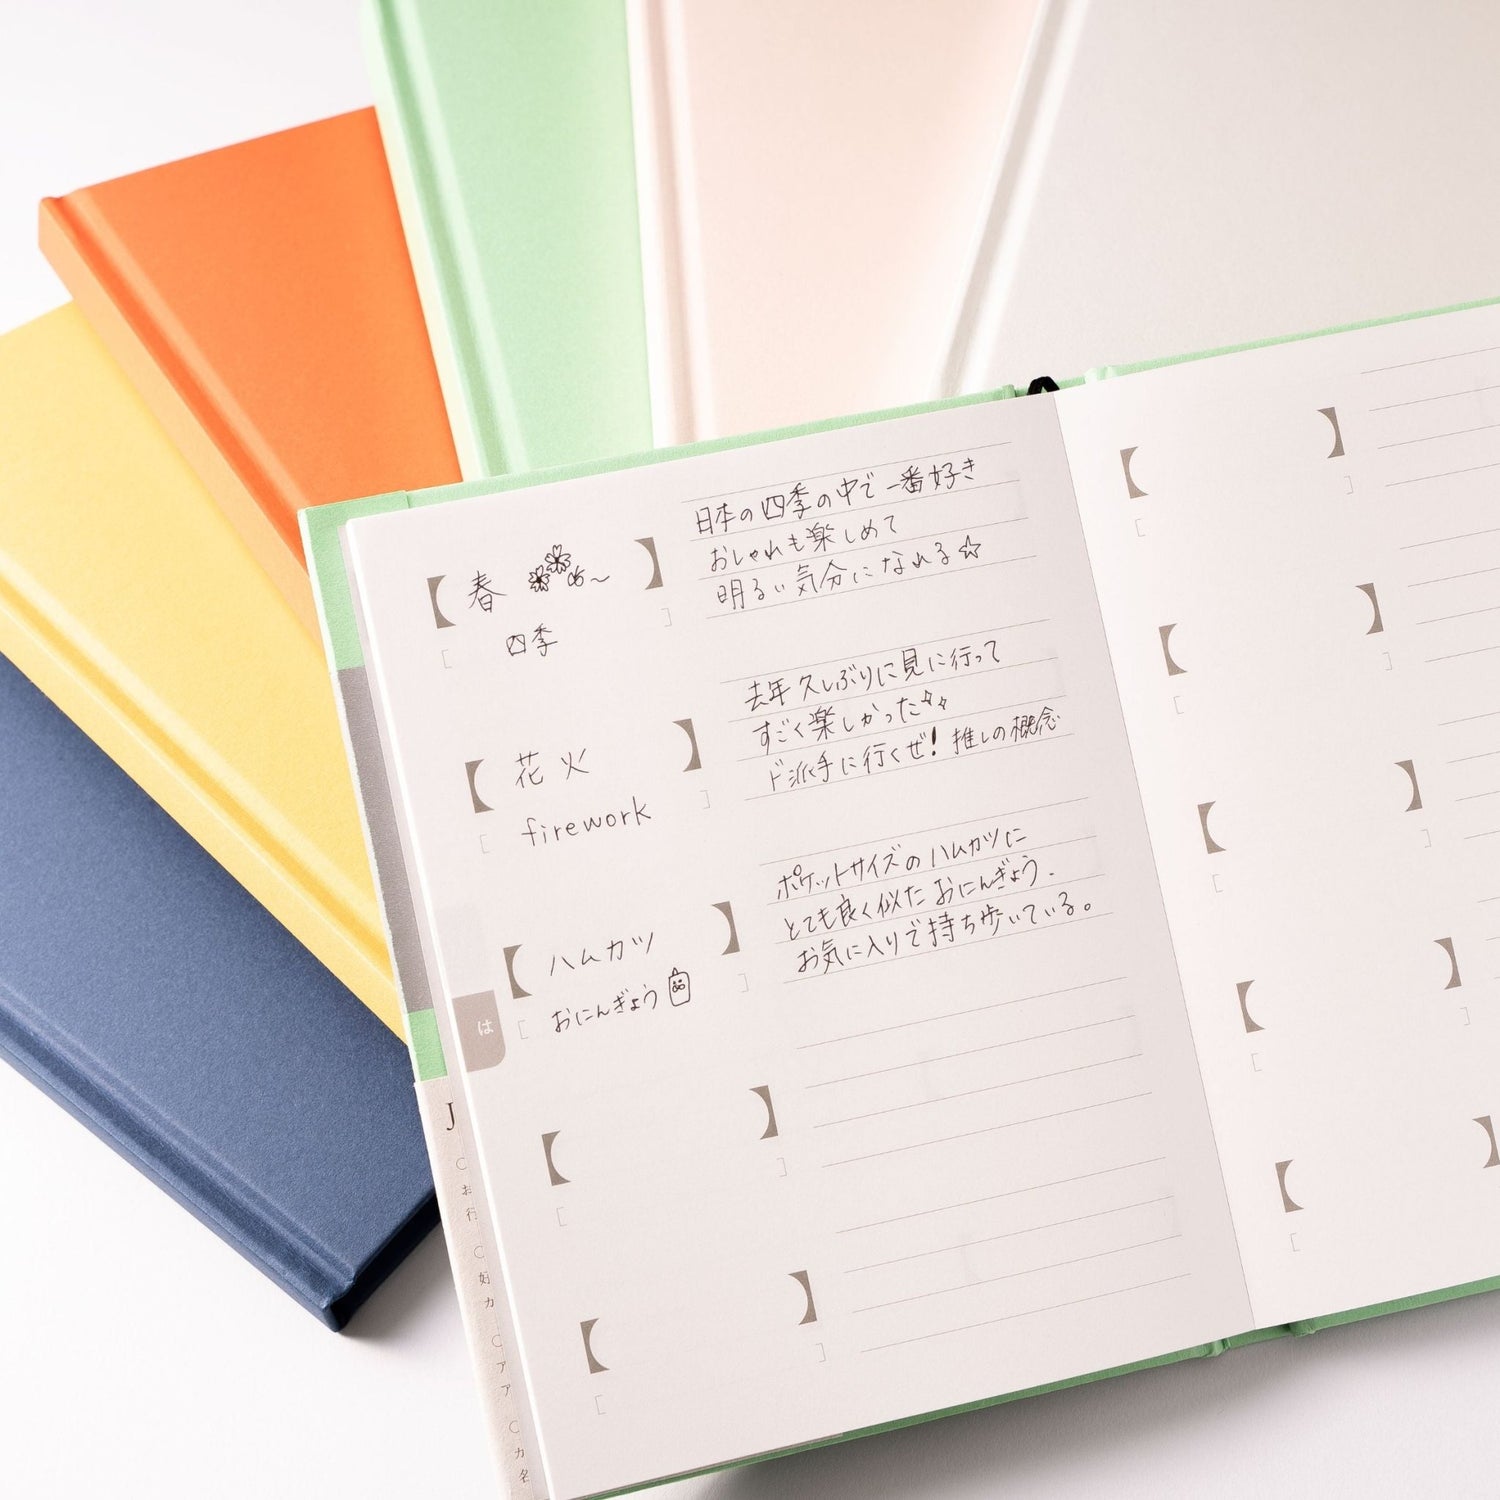 【春】
[四季]
日本の四季の中で一番好き
おしゃれも楽しめて
明るい気分になれる☆
【花火】
[firework]
去年久しぶりに見に行って
すごく楽しかった
ド派手に行くぜ!推しの概念
【ハムカツ】
[おにんぎょう]
ポケットサイズのハムカツに
とても良く似たおにんぎょう、
お気に入りで持ち歩いている。
は
J